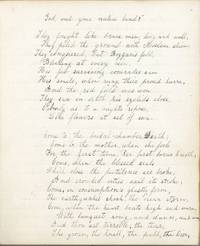 God, and your native land!"
They fought like brave men, long and well,
They piled the ground with Moslem slain
They conquered, but Bozzaris fell,
Bleeding at every vein.
His few surviving comrades saw
His smile, when rang their proud hurra,
And the red field was won
They saw in death his eyelids close
Calmly, as to a nights repose,
Like flowers at set of sun.
Come to the bridal chamber, Death,
Come to the mother, when she feels
For the first time, her first borns breath,
Come, when the blessed seals
Which close the pestilence are broke,
And crowded cities wail its stroke,
Come, in consumption's ghastly form,
The earthquake shock, the ocean storm,
Come, when the heart beats high and warm,
With banquet song, and dance, and
And thou art terrible, the tear,
The groan, the knell, the pall, the bier,